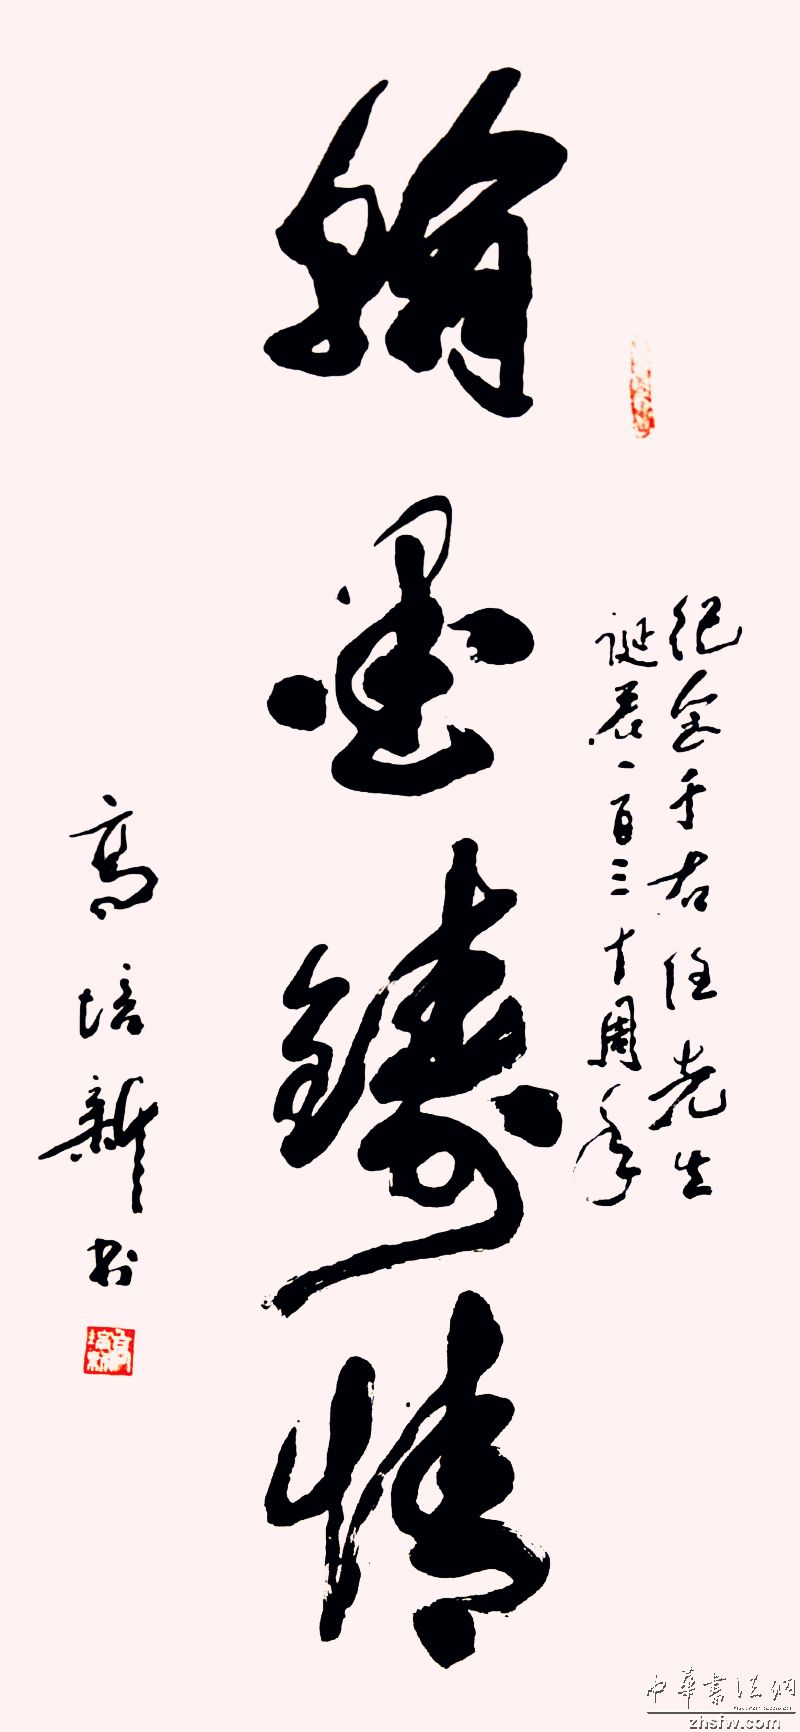 纪念于右任先生
诞辰一百三十周年
翰墨鑄情
高培新书
中華書法網
zhsfw.com